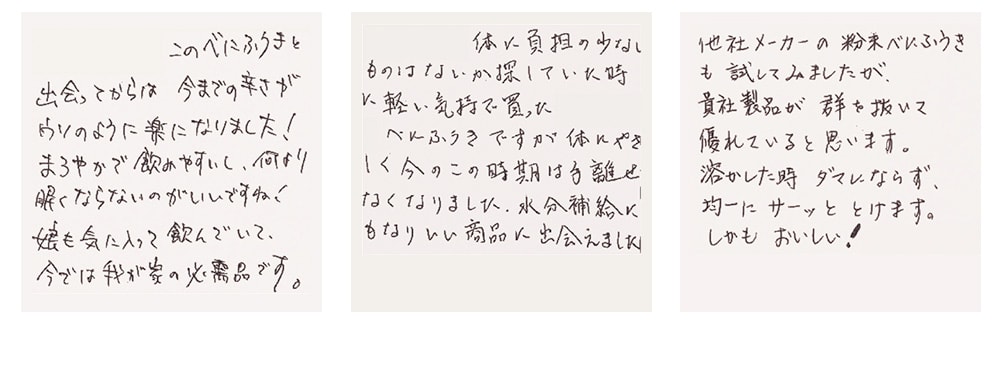 このべにふうきと
出会ってからは 今までの辛さが
ウソのように楽になりました！
まろやかで飲みやすいし、何より
眠くならないのがいいですね！
娘も気に入って飲んでいて、
今では我が家の必需品です。
体に負担の少なし
ものはないか探していた時
に軽い気持で買った
べにふうきですが体にやさ
しく今のこの時期は手離せ
なくなりました。水分補給に
もなりいい商品に出会えました
他社メーカーの粉末べにふうき
も試してみましたが、
貴社製品が群を抜いて
優れていると思います。
溶かした時 ダマにならず、
均一にサーッととけます。
しかも おいしい！